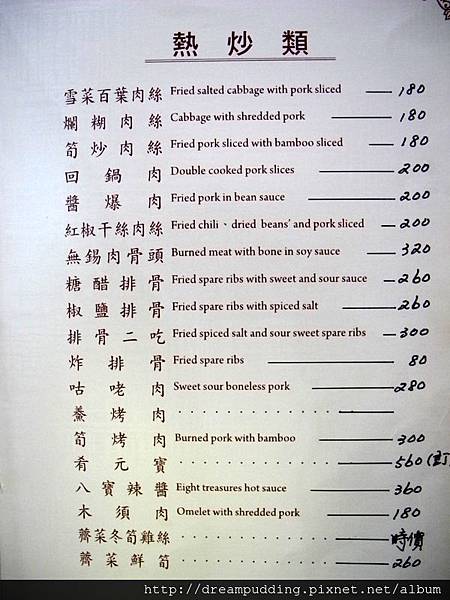 熱炒類
雪菜百葉肉絲 Fried salted cabbage with pork sliced 180
爛糊肉絲 Cabbage with shredded pork 180
筍炒肉絲 Fried pork sliced with bamboo sliced 180
回鍋肉 Double cooked pork slices 200
醬爆肉 Fried pork in bean sauce 200
紅椒干絲肉絲 Fried chili、dried beans' and pork sliced 200
無錫肉骨頭 Burned meat with bone in soy sauce 320
糖醋排骨 Fried spare ribs with sweet and sour sauce 260
椒鹽排骨 Fried spare ribs with spiced salt 260
排骨二吃 Fried spiced salt and sour sweet spare ribs 300
炸排骨 Fried spare ribs 80
咕咾肉 Sweet sour boneless pork 280
鯗烤肉
筍烤肉 Burned pork with bamboo 300
肴元寶 560(訂
八寶辣醬 Eight treasures hot sauce 360
木須肉 Omelet with shredded pork 180
薺菜冬筍雞絲 時價
薺菜鮮筍 260
http://dreampudding.pixnet.net/album